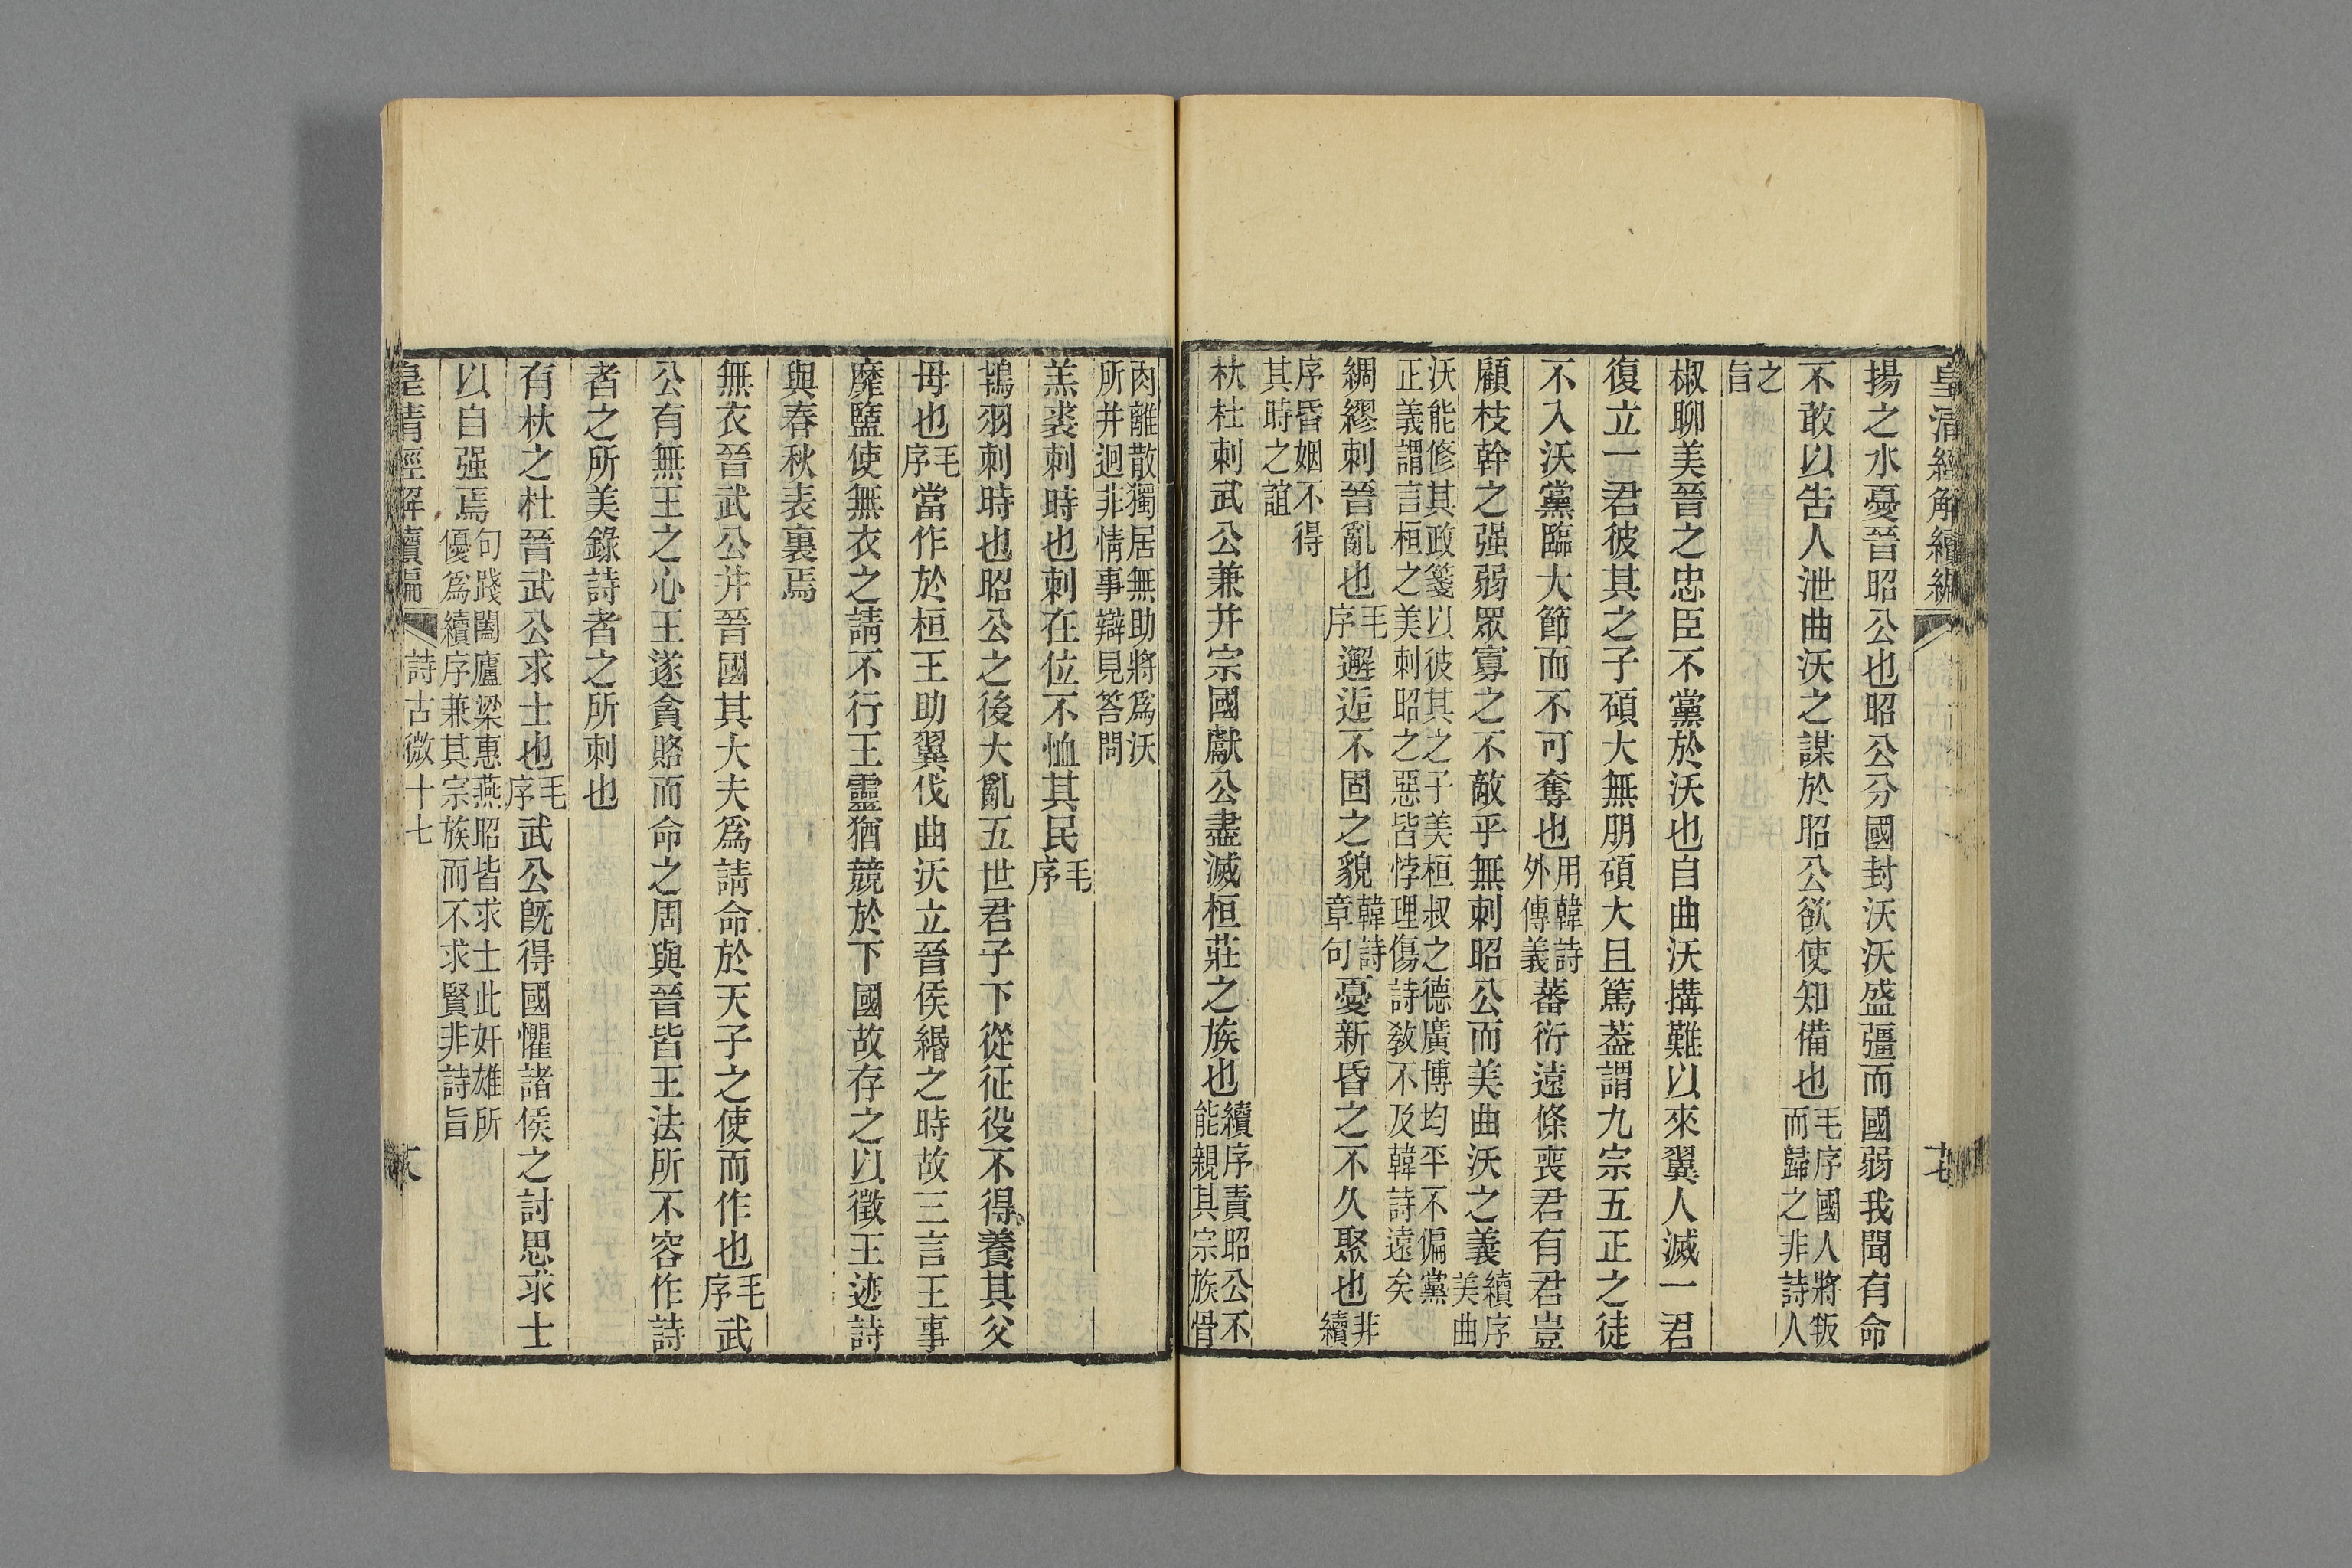 皇清經解續編
揚之水憂晉昭公也昭公分國封沃沃盛彊而國弱我聞有命
不敢以告人泄曲沃之謀於昭公欲使知備也毛序國人將叛而歸之非詩人
之旨
椒聊美晉之忠臣不黨於沃也自曲沃搆難以來翼人滅一君
復立一君彼其之子碩大無朋碩大且篤葢謂九宗五正之徒
不入沃黨臨大節而不可奪也用韓詩外傳義蕃衍遠條喪君有君豈
顧枝幹之强弱眾寡之不敵乎無刺昭公而美曲沃之義續序美曲
沃能修其政箋以彼其之子美桓叔之德廣博均平不偏黨
正義謂言桓之美刺昭之惡皆悖理傷詩敎不及韓詩遠矣
綢繆刺晉亂也毛序邂逅不固之貌韓詩章句憂新昏之不久聚也非續
序昏姻不得
其時之誼
杕杜刺武公兼并宗國獻公盡滅桓莊之族也續序責昭公不能親其宗族骨
肉離散獨居無助將爲沃
所并迥非情事辯見答問
羔裘刺時也刺在位不恤其民毛序
鴇羽刺時也昭公之後大亂五世君子下從征役不得養其父
母也毛序當作於桓王助翼伐曲沃立晉侯緡之時故三言王事
靡盬使無衣之請不行王靈猶競於下國故存之以徵王迹詩
與春秋表裏焉
無衣晉武公并晉國其大夫爲請命於天子之使而作也毛序武
公有無王之心王遂貪賂而命之周與晉皆王法所不容作詩
者之所美錄詩者之所刺也
有杕之杜晉武公求士也毛序武公旣得國懼諸侯之討思求士
以自强焉句踐闔廬梁惠燕昭皆求士此奸雄所優爲續序兼其宗族而不求賢非詩旨
皇清經解續編
詩古微十七